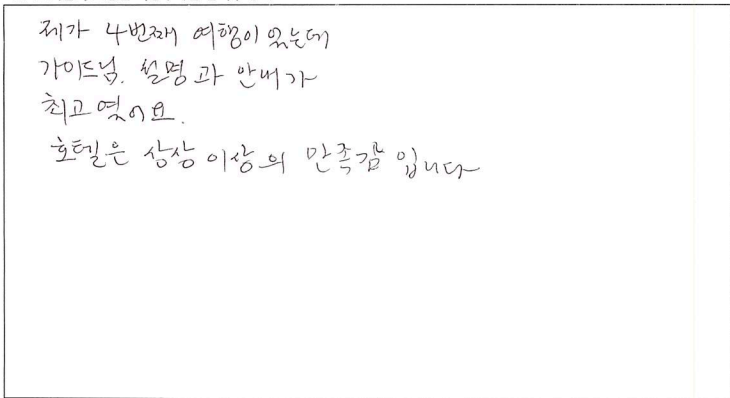 제가 4번째 여행이 있는데
가이드님. 설명과 안내가
최고 였어요.
호텔은 상상 이상의 만족감 입니다